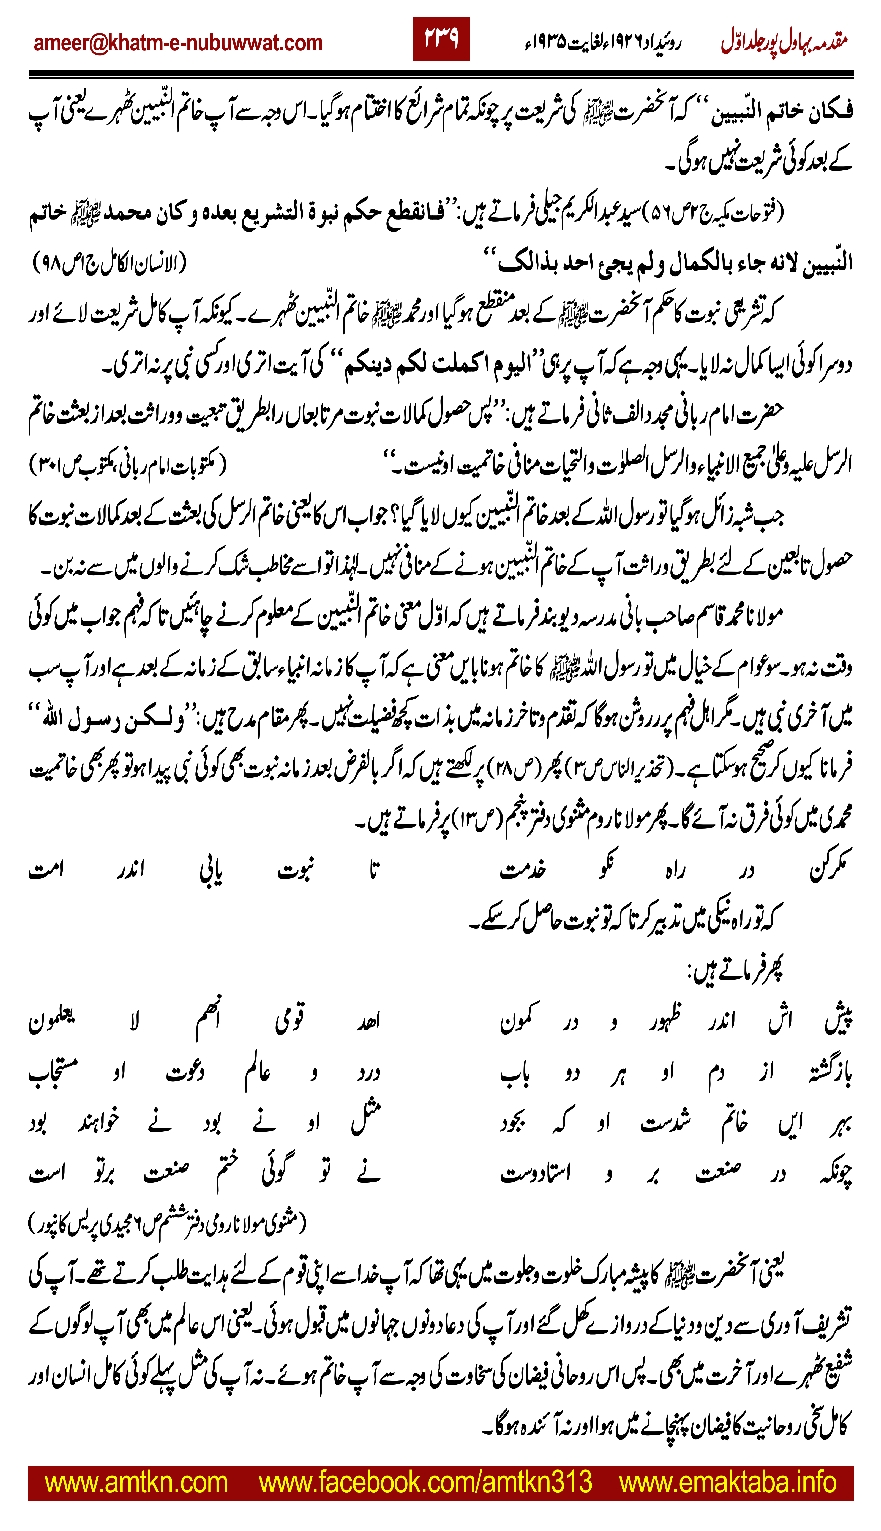 مقدمہ بہاول پور جلد اوّل روئیداد ۱۹۲۶ء لغایت ۱۹۳۵ء ۲۳۹ ameer@khatm-e-nubuwwat.com
فکان خاتم النّبیین‘‘ کہ آنحضرت ﷺ کی شریعت پر چونکہ تمام شرائع کا اختتام ہوگیا۔ اس وجہ سے آپ خاتم النّبیین ٹھہرے یعنی آپ
کے بعد کوئی شریعت نہیں ہوگی۔
(فتوحات مکیہ ج۲ ص۵۶) سید عبدالکریم جیلی فرماتے ہیں: ’’فانقطع حکم نبوۃ التشریع بعدہ وکان محمد ﷺ خاتم
النّبیین لانہ جاء بالکمال ولم یجئ احد بذالک‘‘ (الانسان الکامل ج۱ ص۹۸)
کہ تشریعی نبوت کا حکم آنحضرت ﷺ کے بعد منقطع ہوگیا اور محمد ﷺ خاتم النّبیین ٹھہرے۔ کیونکہ آپ کامل شریعت لائے اور
دوسرا کوئی ایسا کمال نہ لایا۔ یہی وجہ ہے کہ آپ پر ہی ’’الیوم اکملت لکم دینکم‘‘ کی آیت اتری اور کسی نبی پر نہ اتری۔
حضرت امام ربانی مجدد الف ثانی فرماتے ہیں: ’’پس حصول کمالات نبوت مرتابعاں را بطریق تبعیت ووراثت بعد از بعثت خاتم
الرسل علیہ وعلیٰ جمیع الانبیاء والرسل الصلوٰت والتحیات منافی خاتمیت او نیست۔‘‘ (مکتوبات امام ربانی، مکتوب ص۳۰۱)
جب شبہ زائل ہوگیا تو رسول اللہ کے بعد خاتم النّبیین کیوں لایا گیا؟ جواب اس کا یعنی خاتم الرسل کی بعثت کے بعد کمالات نبوت کا
حصول تابعین کے لئے بطریق وراثت آپ کے خاتم النّبیین ہونے کے منافی نہیں۔ لہٰذا تو اسے مخاطب شک کرنے والوں میں سے نہ بن۔
مولانا محمد قاسم صاحب بانی مدرسہ دیوبند فرماتے ہیں کہ اوّل معنی خاتم النّبیین کے معلوم کرنے چاہئیں تاکہ فہم جواب میں کوئی
وقت نہ ہو۔ سو عوام کے خیال میں تو رسول اللہ ﷺ کا خاتم ہونا بایں معنی ہے کہ آپ کا زمانہ انبیاء سابق کے زمانہ کے بعد ہے اور آپ سب
میں آخری نبی ہیں۔ مگر اہل فہم پر روشن ہوگا کہ تقدم وتاخر زمانہ میں بذات کچھ فضیلت نہیں۔ پھر مقام مدح ہیں: ’’ولکن رسول اللہ‘‘
فرمانا کیوں کر صحیح ہوسکتا ہے۔ (تحذیر الناس ص۳) پھر (ص۲۸) پر لکھتے ہیں کہ اگر بالفرض بعد زمانہ نبوت بھی کوئی نبی پیدا ہو تو پھر بھی خاتمیت
محمدی میں کوئی فرق نہ آئے گا۔ پھر مولانا روم مثنوی دفتر پنجم (ص۱۳) پر فرماتے ہیں۔
مکرکن در راہ نکو خدمت تا نبوت یابی اندر امت
کہ تو راہ نیکی میں تدبیر کرتا کہ تو نبوت حاصل کر سکے۔
پھر فرماتے ہیں:
پیش اش اندر ظہور و در کمون اھد قومی انھم لا یعلمون
بازگشتہ از دم او ہر دو باب درد و عالم دعوت او مستجاب
بہر ایں خاتم شدست او کہ بجود مثل او نے بود نے خواہند بود
چونکہ در صنعت بر و استادوست نے تو گوئی ختم صنعت برتو است
(مثنوی مولانا رومی دفتر ششم ص۶ مجیدی پریس کانپور)
یعنی آنحضرت ﷺ کا پیشہ مبارک خلوت وجلوت میں یہی تھا کہ آپ خدا سے اپنی قوم کے لئے ہدایت طلب کرتے تھے۔ آپ کی
تشریف آوری سے دین ودنیا کے دروازے کھل گئے اور آپ کی دعا دونوں جہانوں میں قبول ہوئی۔ یعنی اس عالم میں بھی آپ لوگوں کے
شفیع ٹھہرے اور آخرت میں بھی۔ پس اس روحانی فیضان کی سخاوت کی وجہ سے آپ خاتم ہوئے۔ نہ آپ کی مثل پہلے کوئی کامل انسان اور
کامل سخی روحانیت کا فیضان پہنچانے میں ہوا اور نہ آئندہ ہوگا۔
www.amtkn.com www.facebook.com/amtkn313 www.emaktaba.info